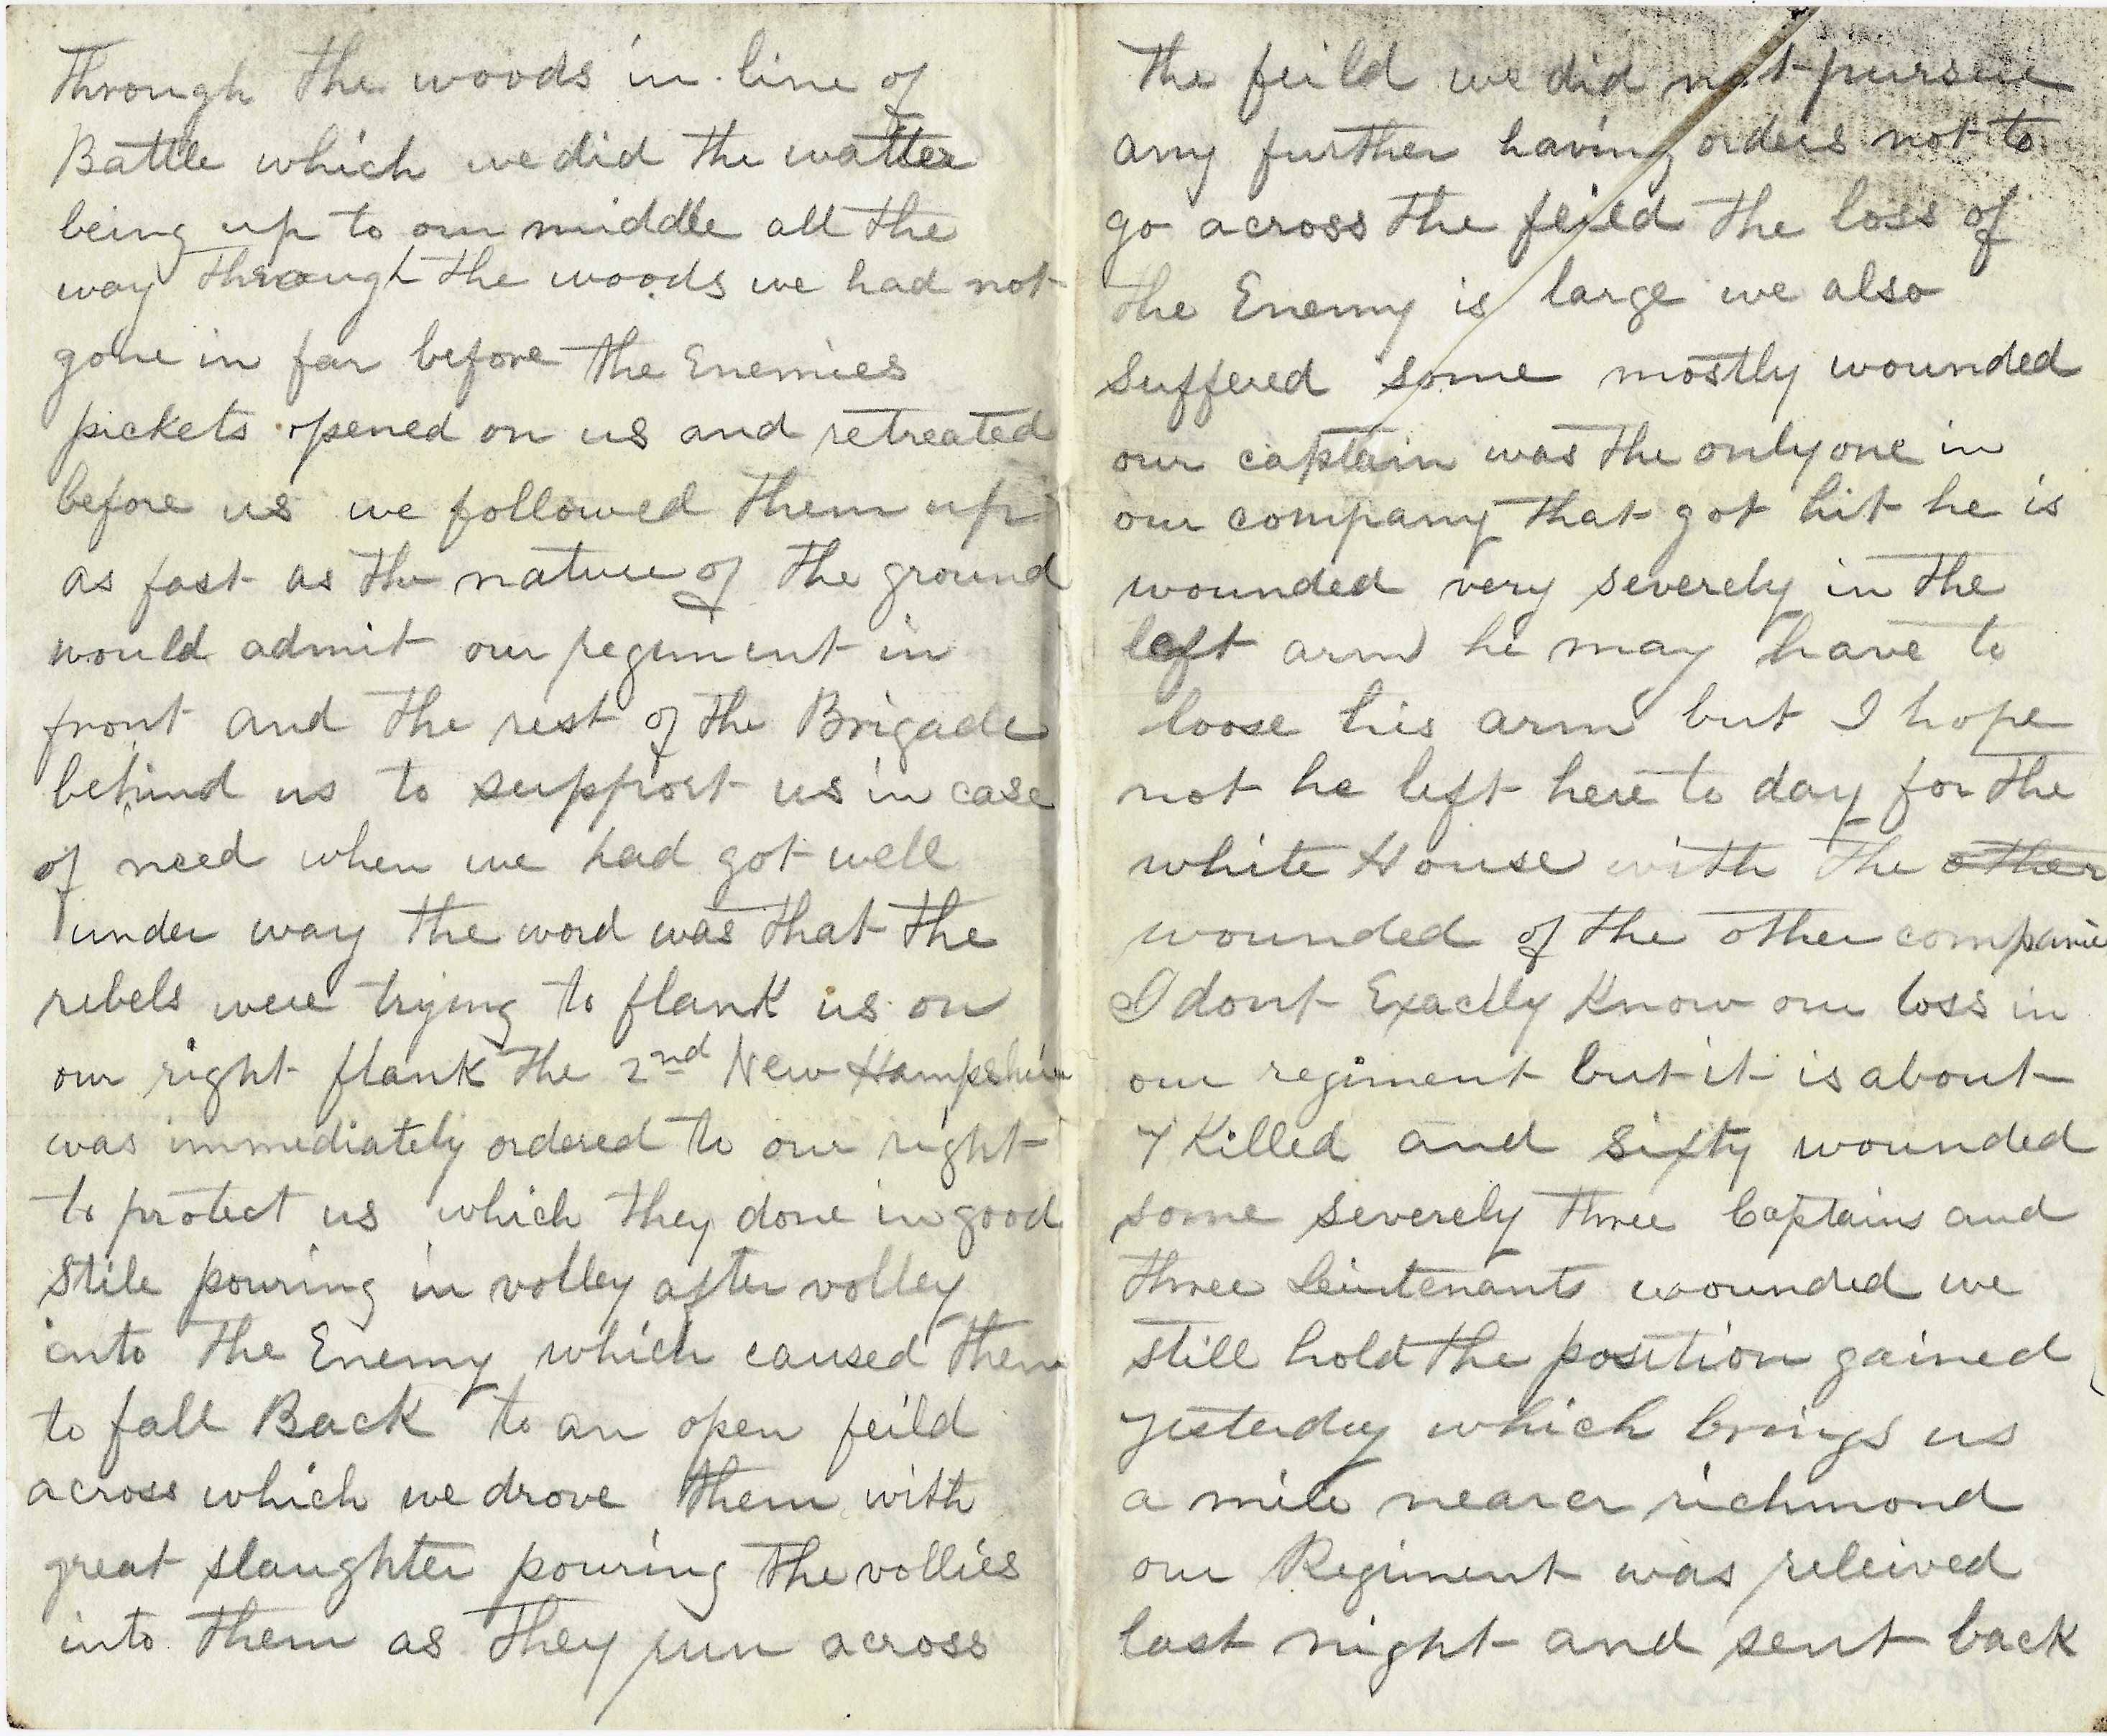 Through the woods in line of
Battle which we did the watter
being up to our middle all the
way through the woods we had not
gone in far before the Enemies
pickets opened on us and retreated
before us we followed them up
as fast as the nature of the ground
would admit our regiment in
front and the rest of the Brigade
behind us to support us in case
of need when we had got well
under way the word was that the
rebels were trying to flank us on
our right flank the 2nd New Hampshire
was immediately ordered to our right
to protect us which they done in good
stile pouring in volley after volley
into the Enemy which caused them
to fall Back to an open feild
across which we drove them with
great slaughter pouring the vollies
into them as they run across
the feild we did not pursue
any further having orders not to
go across the feild the loss of
the Enemy is large we also
suffered some mostly wounded
our captain was the only one in
our company that got hit he is
wounded very severely in the
left arm he may have to
loose his arm but I hope
not he left here to day for the
white House with the other
wounded of the other companies
I dont Exactly Know our loss in
our regiment but it is about
7 Killed and sixty wounded
some severely three Captains and
three Leiutenants wounded we
still hold the position gained
yesterday which brings us
a mile nearer richmond
our Regiment was releived
last night and sent back